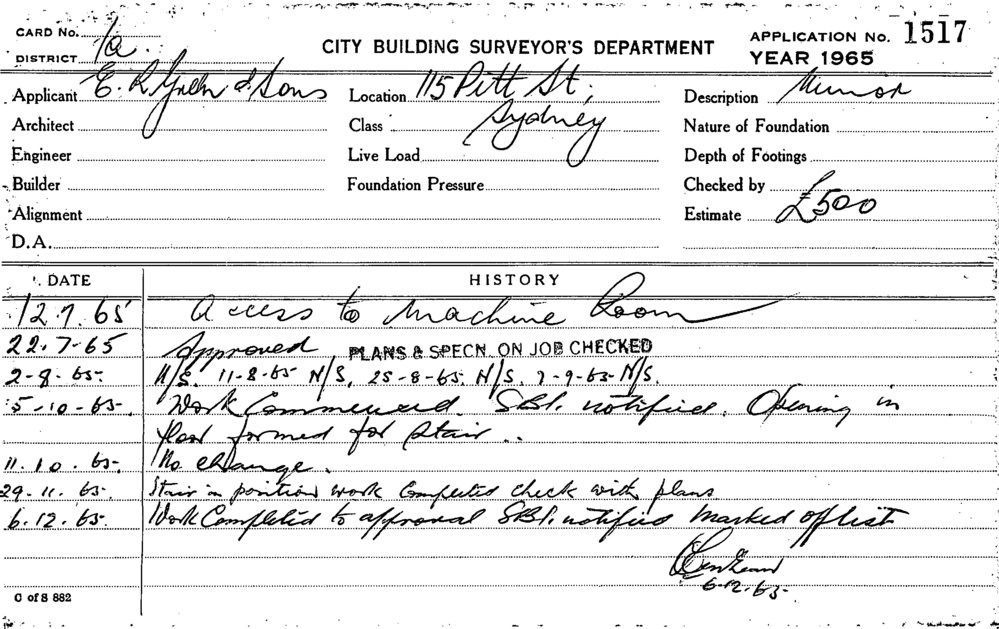 CARD No. 1a
DISTRICT
CITY BUILDING SURVEYOR'S DEPARTMENT
APPLICATION No. 1517
YEAR 1965
Applicant E. R. & Sons
Location 115 Pitt St,
Description Minor
Architect
Class Sydney
Nature of Foundation
Engineer
Live Load
Depth of Footings
Builder
Foundation Pressure
Checked by
Alignment
Estimate £500
D.A.
DATE HISTORY
12.7.65 Access to Machine Room
22.7-65 Approved PLANS & SPECN. ON JOB CHECKED
2-8-65. N/S. 11-8-65 N/S, 25-8-65. N/S. 7-9-65 N/S.
5-10-65. Work Commenced. S.B.I. notified. Opening in
floor formed for stair ..
11.10.65. No change.
29.11.65. Stair in position work Completed check with plans
6.12.65. Work Completed to approval S.B.I. notified Marked off list
6-12.65-
C of S 882